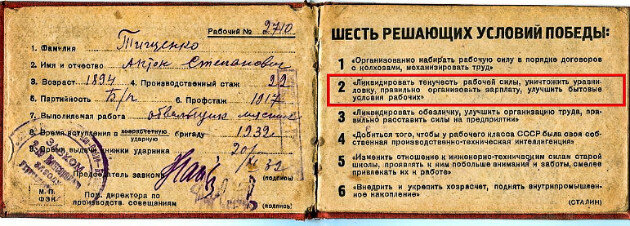 Рабочий № 2710
1. Фамилия Тищенко
2. Имя и отчество Антон Степанович
3. Возраст 1894 4. Производственный стаж 22
5. Партийность Б/п 6. Профстаж 1917
7. Выполняемая работа
8. Время вступления в хозрасчетную ударную бригаду 1932
9. Время выдачи книжки ударника 20/ 32
Председатель завкома
(подпись)
М. П.
ФЗК
Пом. директора по
производств. совещаниям
(подпись)
ШЕСТЬ РЕШАЮЩИХ УСЛОВИЙ ПОБЕДЫ:
1 «Организованно набирать рабочую силу в порядке договоров
с колхозами, механизировать труд»
2 «Ликвидировать текучесть рабочей силы, уничтожить уравни-
ловку, правильно организовать зарплату, улучшить бытовые
условия рабочих»
3 «Ликвидировать обезличку, улучшить организацию труда, пра-
вильно расставить силы на предприятии»
4 «Добиться того, чтобы у рабочего класса СССР была своя соб-
ственная производственно-техническая интеллигенция»
5 «Изменить отношение к инженерно-техническим силам старой
школы, проявлять к ним побольше внимания и заботы, смелее
привлекать их к работе»
6 «Внедрить и укрепить хозрасчет, поднять внутрипромышлен-
ное накопление»
(СТАЛИН)